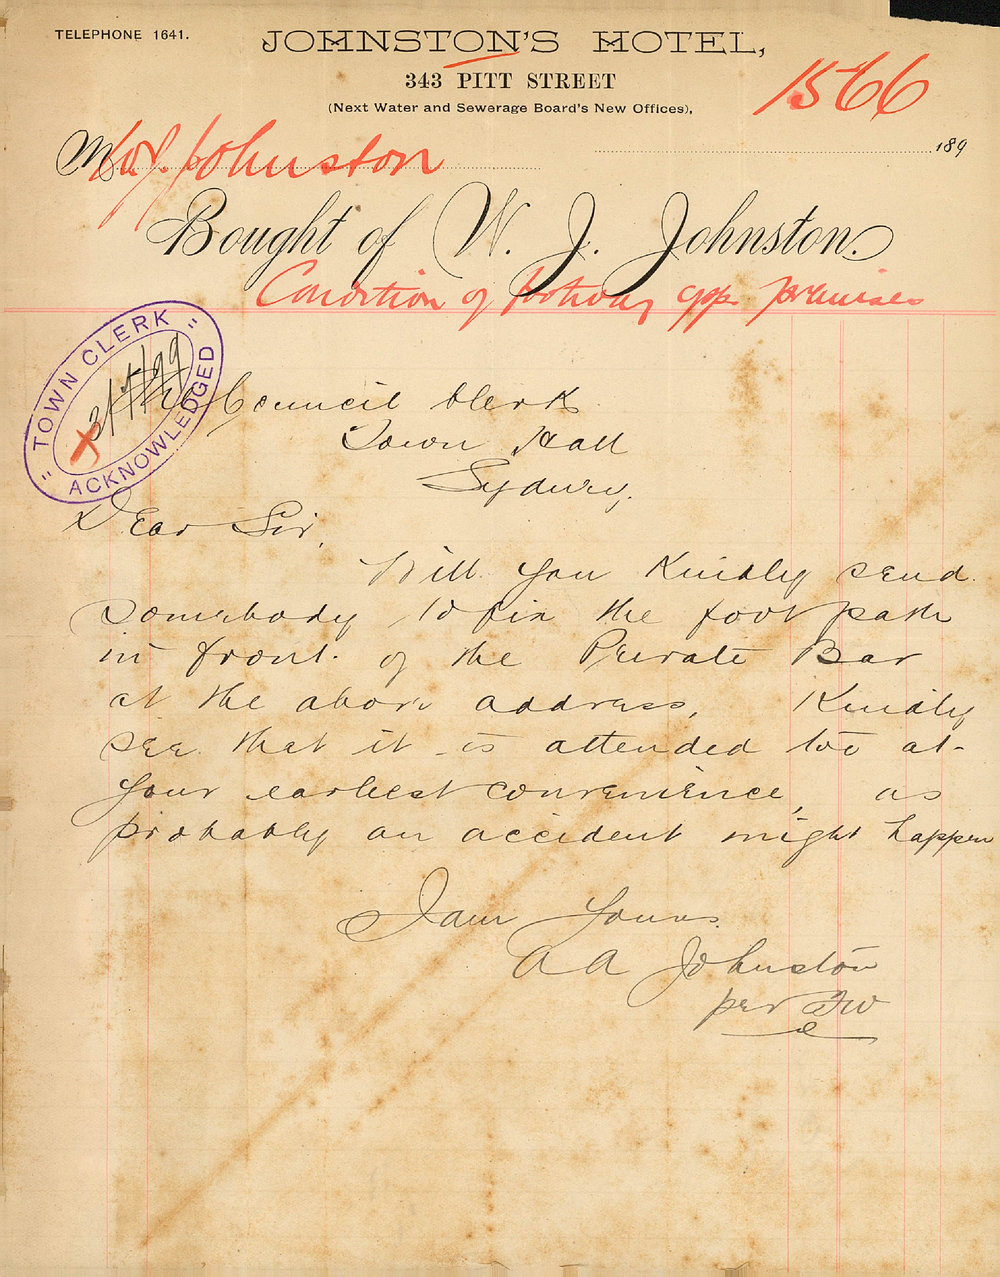 TELEPHONE 1641.
JOHNSTON'S HOTEL,
343 PITT STREET
(Next Water and Sewerage Board's New Offices),
1566
189
M W. J. Johnston
Bought of W. J. Johnston.
Condition of footway opp. premises
"TOWN CLERK"
ACKNOWLEDGED
The Council Clerk
Town Hall
Sydney.
Dear Sir,
Will you Kindly send
somebody to fix the foot path
in front of the Private Bar
at the above address, Kindly
see that it is attended too at
your earliest convenience, as
probably an accident might happen
I am Yours
A A Johnston
per